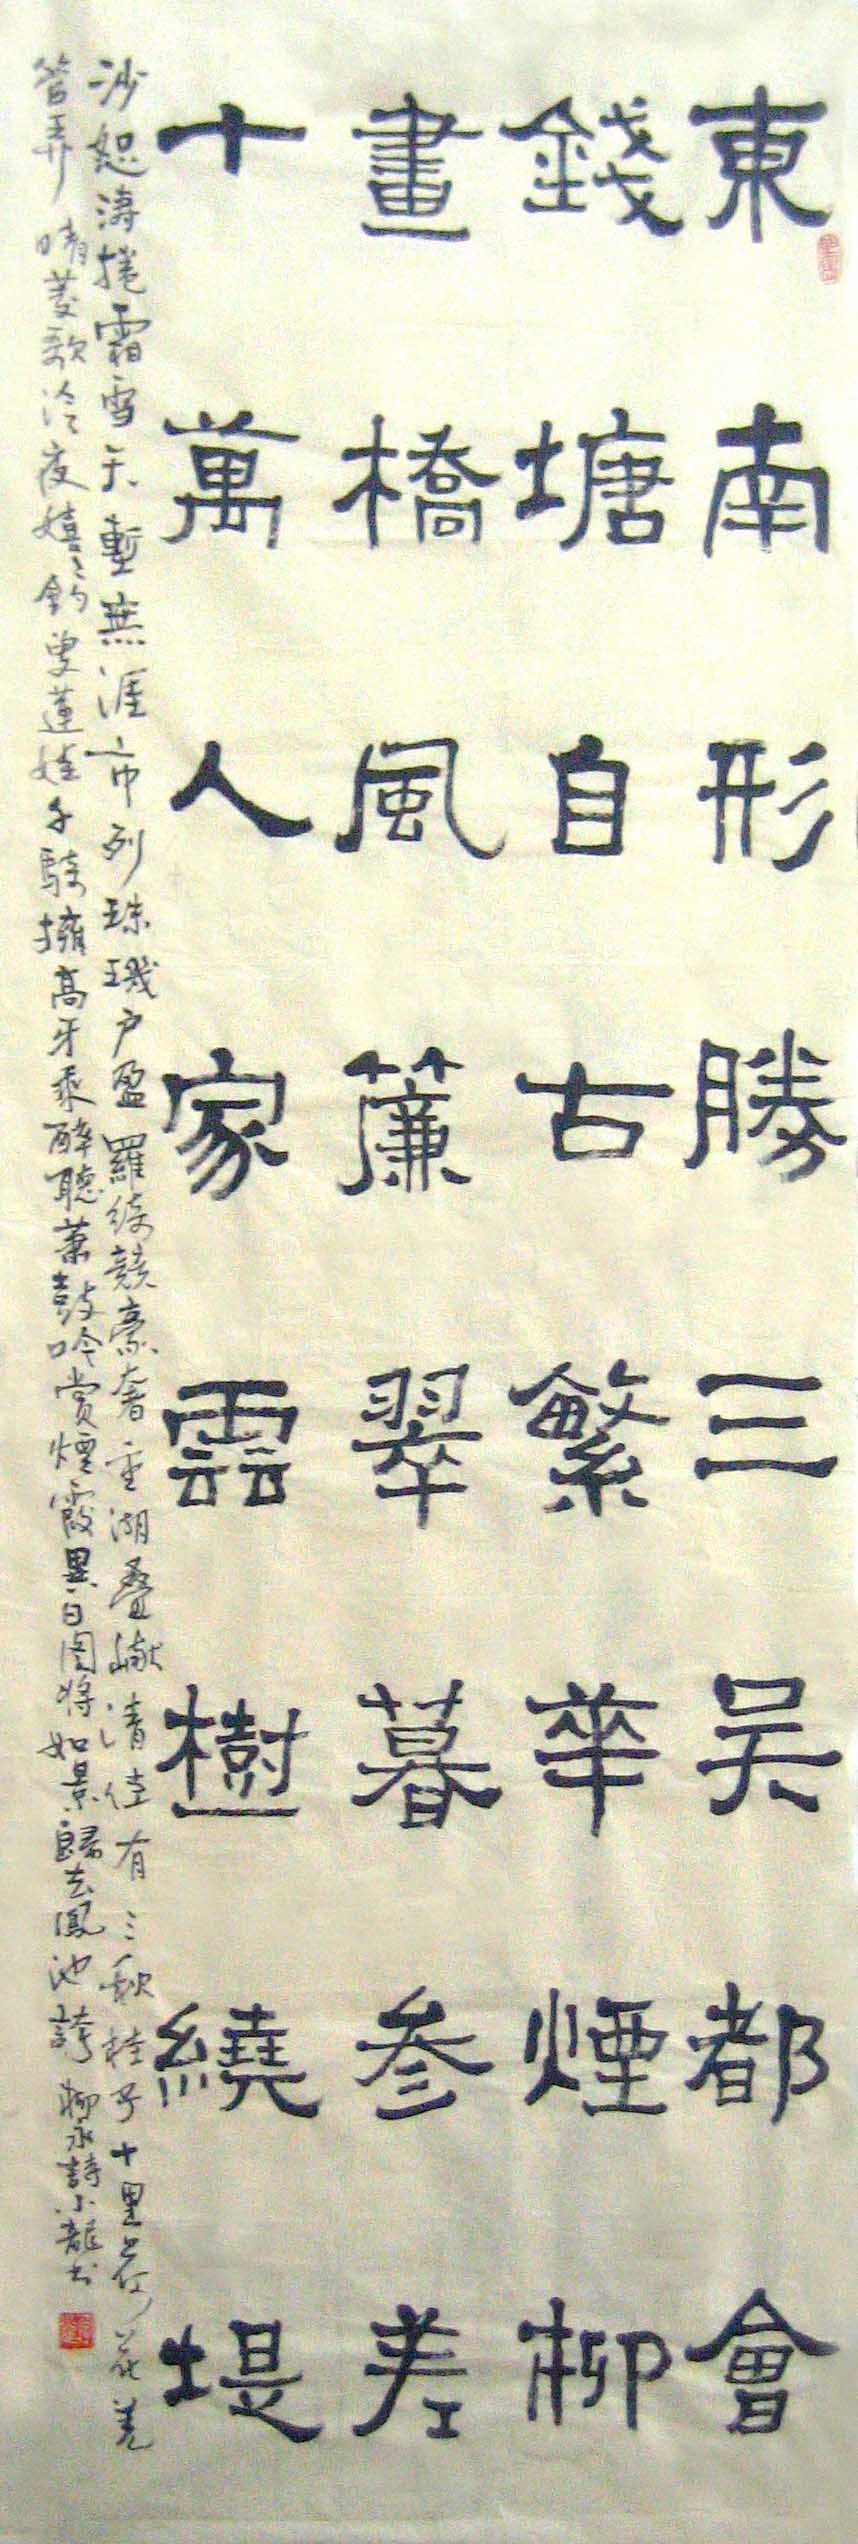 東南形勝三吳都會
錢塘自古繁華煙柳
畫橋風簾翠暮参差
十萬人家雲樹繞堤
沙恕濤捲霜雪天塹無涯市列珠璣户盈羅綺競豪奢重湖叠巘清佳有三秋桂子十里荷花羌
管弄晴菱歌泛夜嬉々釣叟蓮娃千騎擁高牙乘醉聽蕭鼓吟賞煙霞異日图將如景歸去鳳池誇柳永詩小龍书